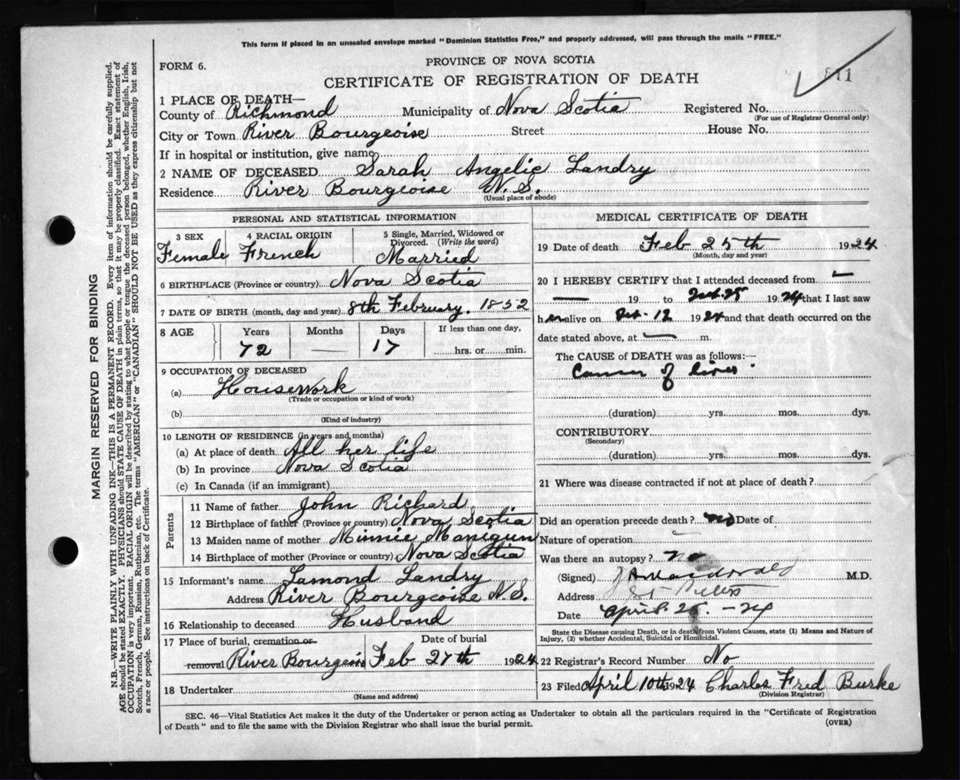 This form if placed in an unsealed envelope marked "Dominion Statistics Free," and properly addressed, will pass through the mails "FREE."
FORM 6.
PROVINCE OF NOVA SCOTIA
CERTIFICATE OF REGISTRATION OF DEATH
1 PLACE OF DEATH—
County of Richmond Municipality of Nova Scotia Registered No.
(For use of Registrar General only)
City or Town River Bourgeoise Street House No.
If in hospital or institution, give name
2 NAME OF DECEASED Sarah Angelic Landry
Residence River Bourgeoise N.S.
(Usual place of abode)
PERSONAL AND STATISTICAL INFORMATION
3 SEX 4 RACIAL ORIGIN 5 Single, Married, Widowed or Divorced. (Write the word)
Female French Married
6 BIRTHPLACE (Province or country) Nova Scotia
7 DATE OF BIRTH (month, day and year) 8th February. 1852
8 AGE Years Months Days If less than one day,
72 — 17 hrs. or min.
9 OCCUPATION OF DECEASED
(a) Housework
(Trade or occupation or kind of work)
(b)
(Kind of industry)
10 LENGTH OF RESIDENCE (in years and months)
(a) At place of death All her life
(b) In province Nova Scotia
(c) In Canada (if an immigrant)
Parents
11 Name of father John Richard
12 Birthplace of father (Province or country) Nova Scotia
13 Maiden name of mother Minnie
14 Birthplace of mother (Province or country) Nova Scotia
15 Informant's name Lamond Landry
Address River Bourgeoise N.S.
16 Relationship to deceased Husband
17 Place of burial, cremation or removal Date of burial
River Bourgeois Feb 27th 1924
18 Undertaker
(Name and address)
MEDICAL CERTIFICATE OF DEATH
19 Date of death Feb 25th 1924
(Month, day and year)
20 I HEREBY CERTIFY that I attended deceased from —
— 19 to Feb. 25 1924 that I last saw
h er alive on Feb. 12 1924 and that death occurred on the
date stated above, at — m.
The CAUSE of DEATH was as follows:—
Cancer of liver
(duration) yrs. mos. dys.
CONTRIBUTORY
(Secondary)
(duration) yrs. mos. dys.
21 Where was disease contracted if not at place of death?
Did an operation precede death? no Date of
Nature of operation
Was there an autopsy? no
(Signed) M.D.
Address St Peters
Date April 25 - 24
State the Disease causing Death, or in death from Violent Causes, state (1) Means and Nature of Injury, (2) whether Accidental, Suicidal or Homicidal.
22 Registrar's Record Number No
23 Filed April 10th 1924 Charles Fred Burke
(Division Registrar)
SEC. 46—Vital Statistics Act makes it the duty of the Undertaker or person acting as Undertaker to obtain all the particulars required in the "Certificate of Registration
of Death" and to file the same with the Division Registrar who shall issue the burial permit.
(OVER)
MARGIN RESERVED FOR BINDING
N.B.—WRITE PLAINLY WITH UNFADING INK—THIS IS A PERMANENT RECORD. Every item of information should be carefully supplied.
AGE should be stated EXACTLY. PHYSICIANS should STATE CAUSE OF DEATH in plain terms, so that it may be properly classified. Exact statement of
OCCUPATION is very important. RACIAL ORIGIN will be described by stating to what people or tongue the deceased person belonged, whether English, Irish,
Scotch, French, German, Russian, Ruthenian, etc. The terms "AMERICAN" or "CANADIAN" SHOULD NOT BE USED as they express citizenship but not
a race or people. See instructions on back of Certificate.